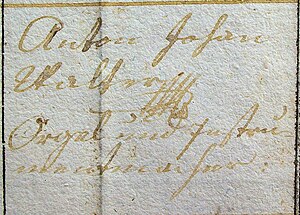 Anton Johan
Walter
Orgel und Instru-
mentmacher